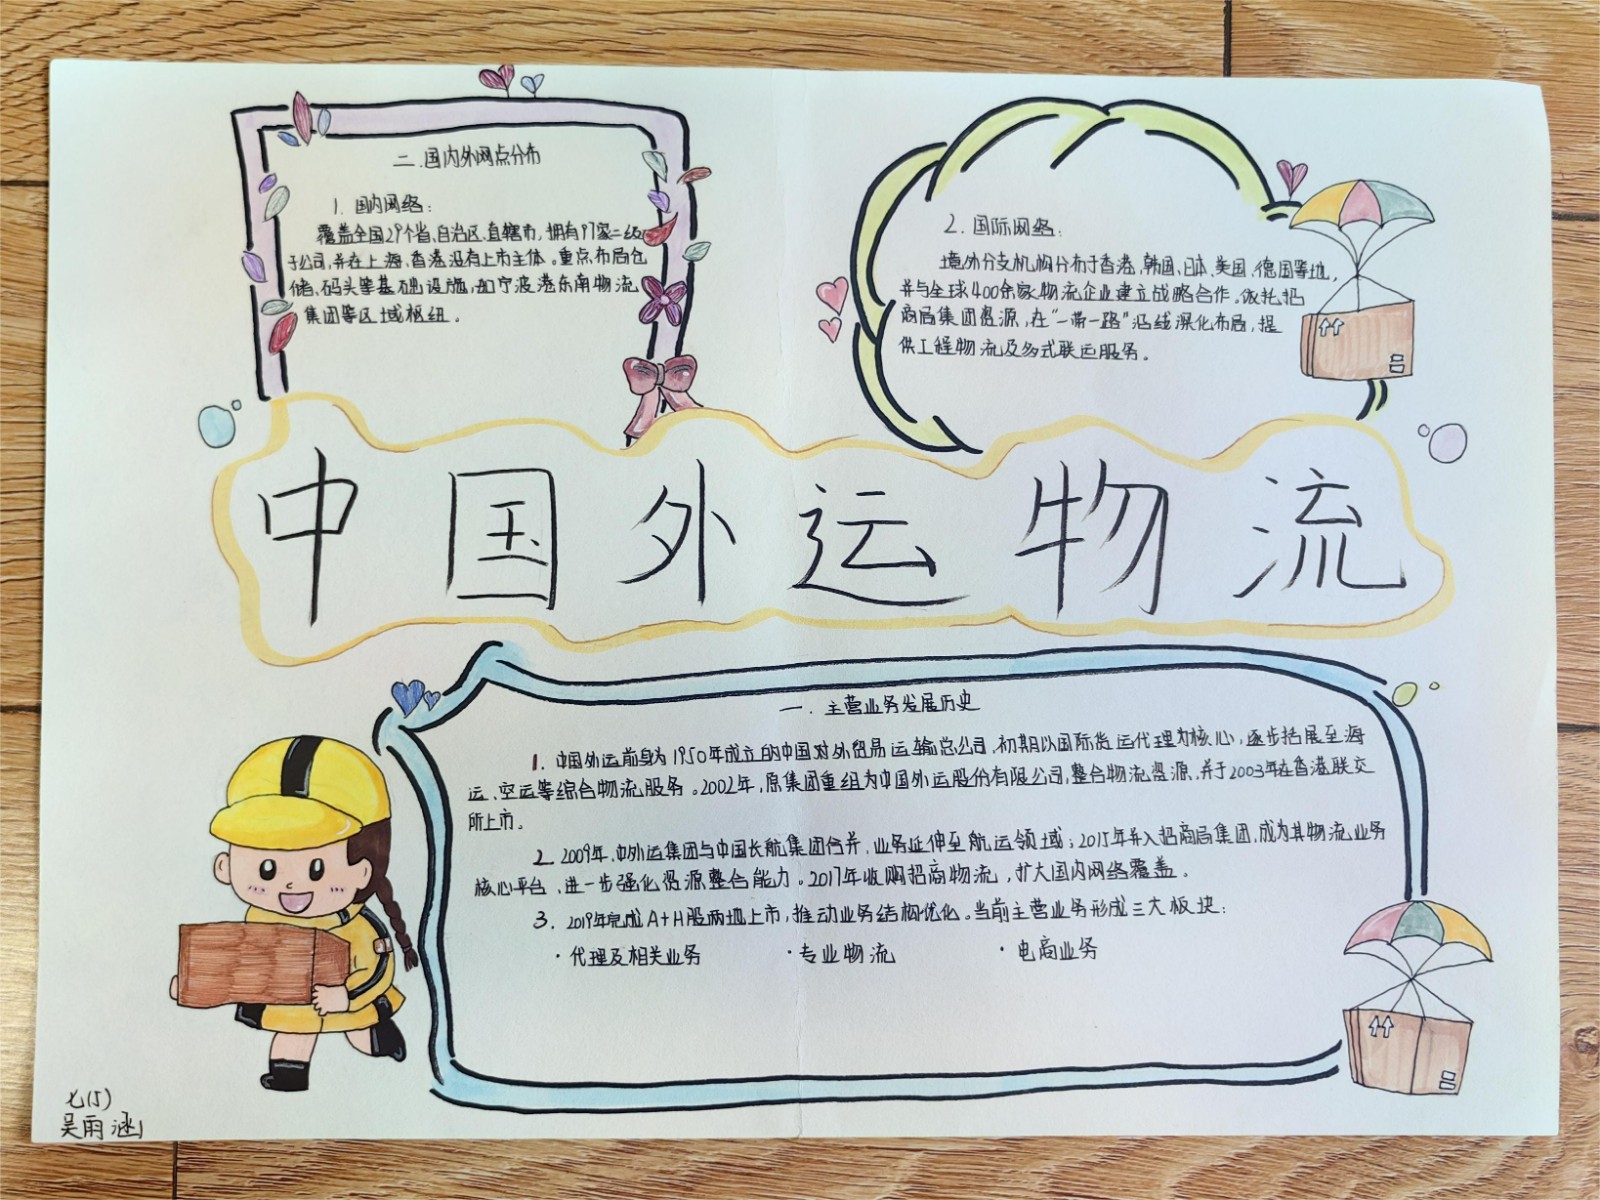 二.国内外网点分布
1. 国内网络:
覆盖全国29个省、自治区、直辖市,拥有97家二级
子公司,并在上海、香港设有上市主体。重点布局仓
储、码头等基础设施,如宁波港东南物流
集团等区域枢纽。
2. 国际网络:
境外分支机构分布于香港、韩国、日本、美国、德国等地,
并与全球400余家物流企业建立战略合作。依托招
商局集团资源,在“一带一路”沿线深化布局,提
供工程物流及多式联运服务。
中国外运物流
一. 主营业务发展历史
1. 中国外运前身为1950年成立的中国对外贸易运输总公司,初期以国际货运代理为核心,逐步拓展至海
运、空运等综合物流服务。2002年,原集团重组为中国外运股份有限公司,整合物流资源,并于2003年在香港联交
所上市。
2 2009年,中外运集团与中国长航集团合并,业务延伸至航运领域;2015年并入招商局集团,成为其物流业务
核心平台,进一步强化资源整合能力。2017年收购招商物流,扩大国内网络覆盖。
3. 2019年完成A+H股两地上市,推动业务结构优化。当前主营业务形成三大板块:
·代理及相关业务 ·专业物流 ·电商业务
七(5)
吴雨涵